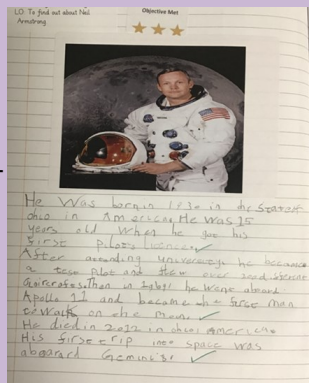 LO: To find out about Neil
Armstrong.
Objective Met!
He Was born in 1930 in the State of
ohio in American. He Was 15
years old When he got his
first pilots
After university he became
a test Pilot and over
aircrafts. Then in he Went aboard
Apollo 11 and became the first man
to Walk on the moon.
He died in 2012 in ohio America
His first trip into space was
Gemini 8